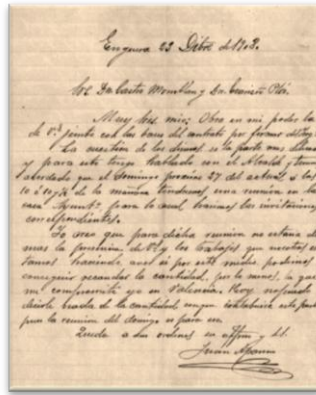 Enguera 23 Dibre de 1908.
Sres Dn Casto
Muy Sres. mios: Obra en mi poder la
de Vd junto con las bases del contrato
La cuestion de los dineros es la parte mas
y para esto tengo hablado con el Alcalde y tenemos
acordado que el domingo proximo 27 del actual a las
10 a 10 y ½ de la mañana tendremos una reunion en la
casa Ayunto, para lo cual haremos las invitaciones
correspondientes.
Yo creo que para dicha reunion no estaria de
mas la presencia de Vd y los trabajos que nosotros es-
tamos haciendo a ver si por este medio podemos
conseguir recaudar la cantidad, por lo menos, la que
me comprometi yo en Valencia. Hoy no puedo
decirle exacta de la cantidad
para la reunion del domingo
Queda a sus ordenes su affmo S. S.
Juan Aparicio